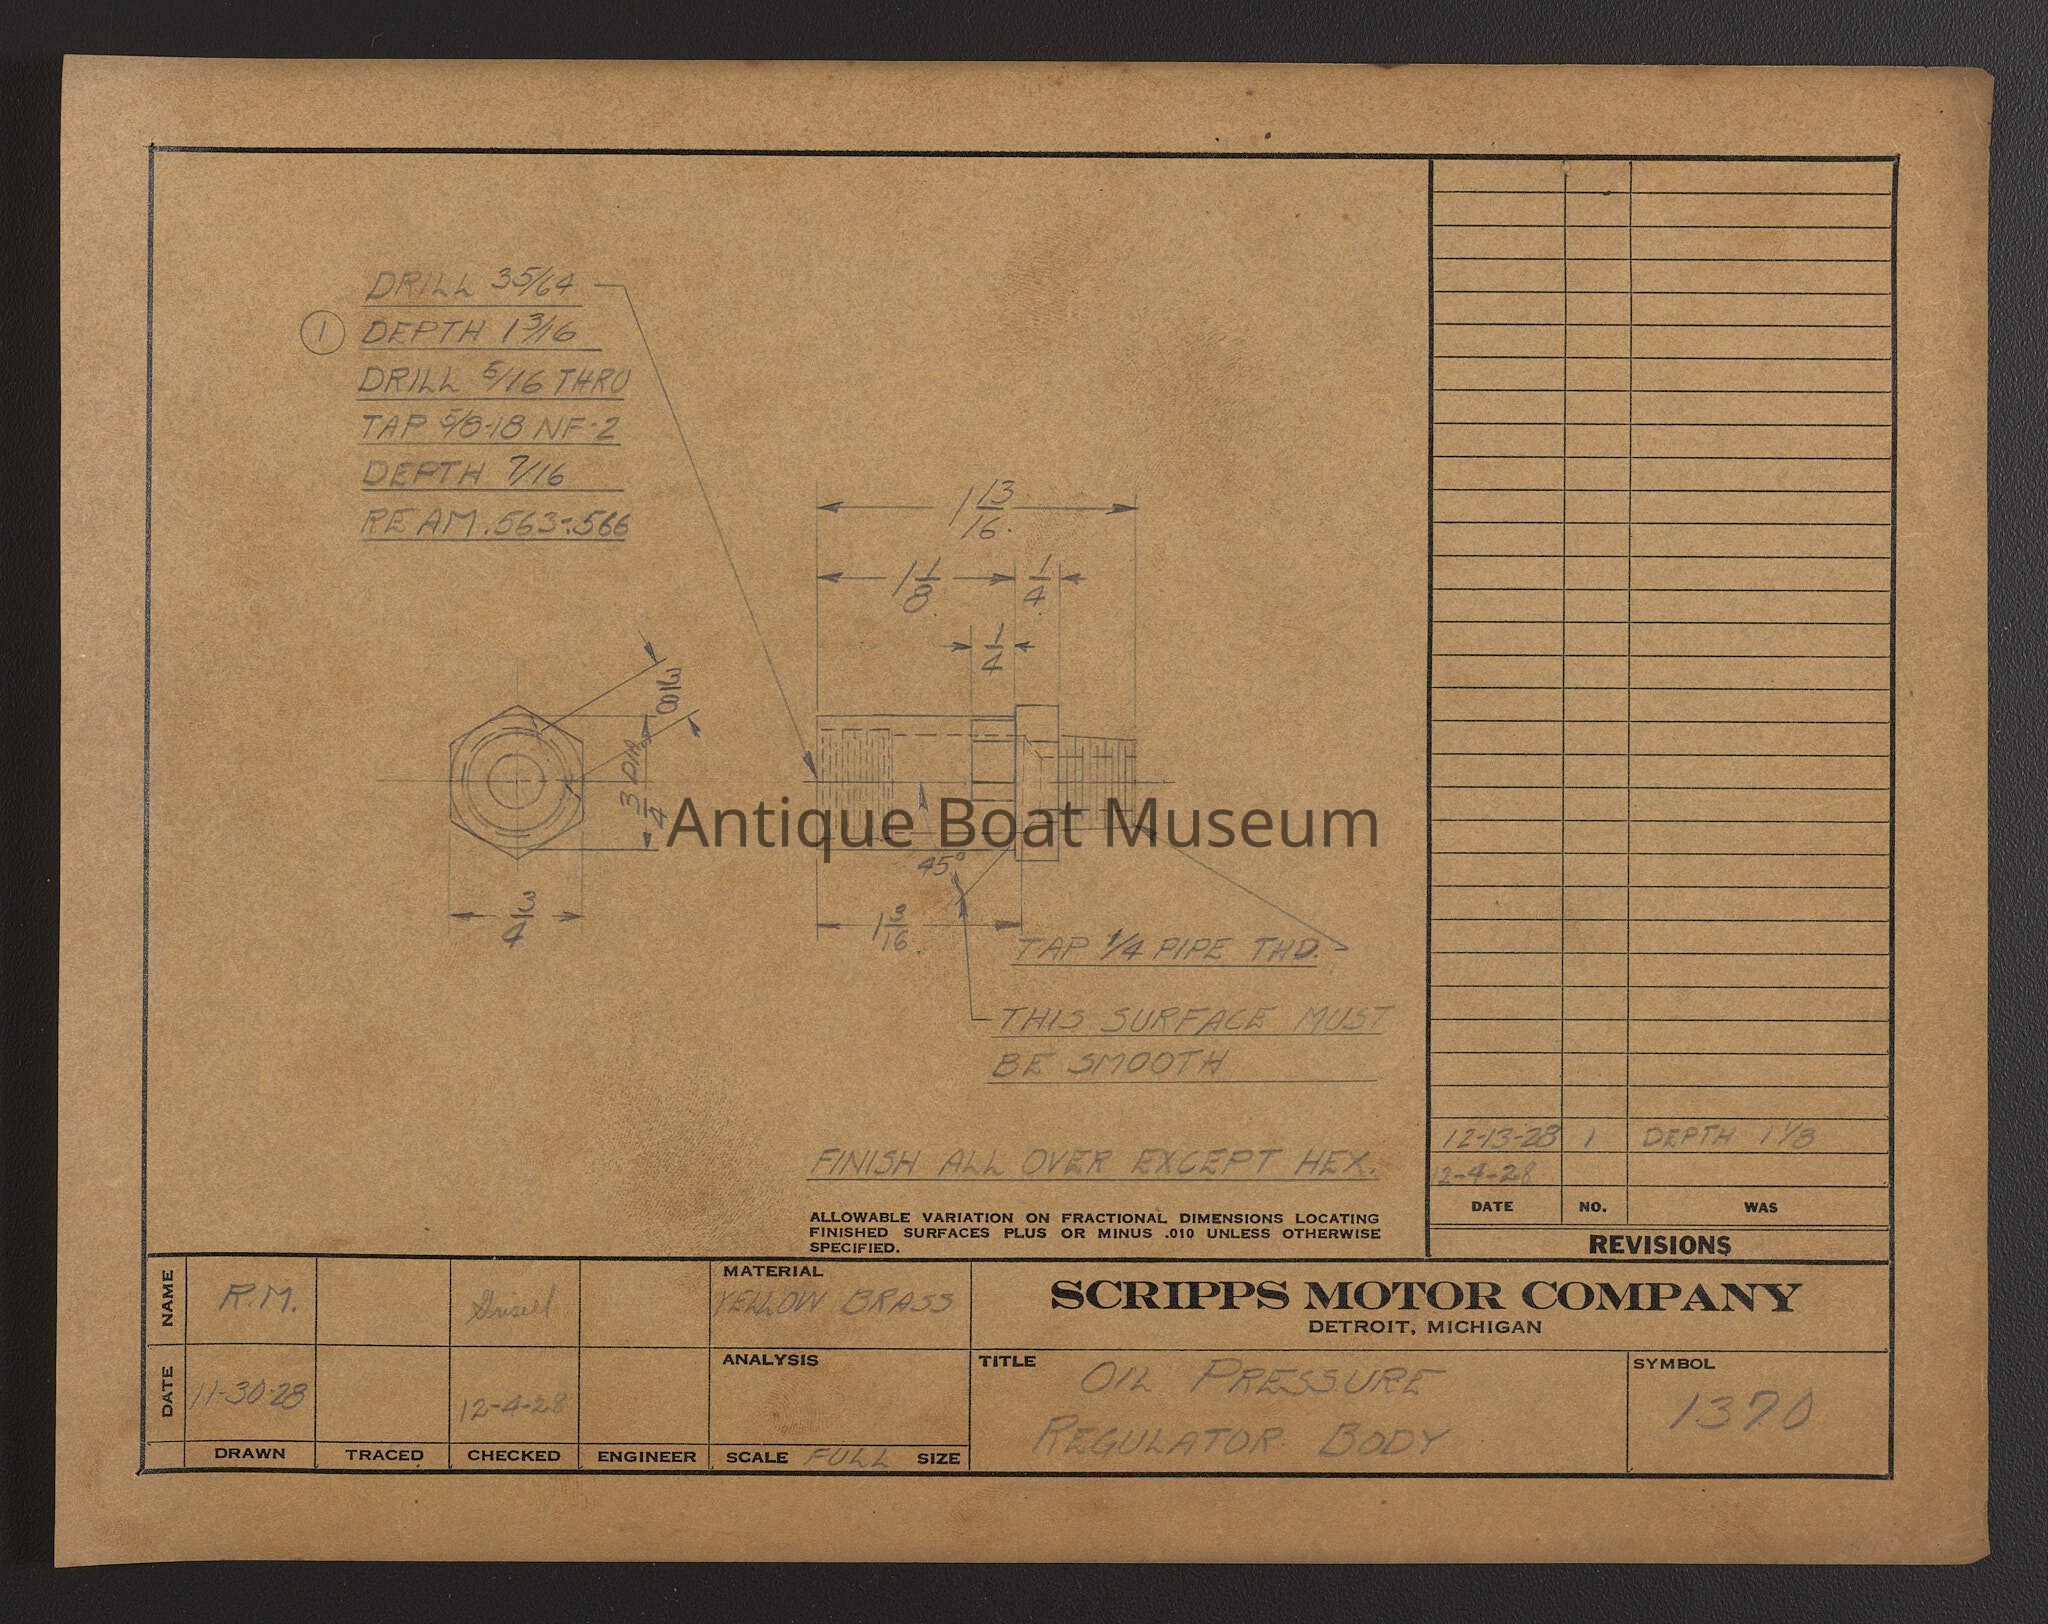 DRILL 35/64
1 DEPTH 1 3/16
DRILL 5/16 THRU
TAP 5/8-18 NF-2
DEPTH 7/16
REAM .563-.566
1 13/16
1 1/8 1/4
1/4
3/8
3/4 DIA.
3/4
45°
1 3/16
TAP 1/4 PIPE THD.
THIS SURFACE MUST
BE SMOOTH
Antique Boat Museum
FINISH ALL OVER EXCEPT HEX.
ALLOWABLE VARIATION ON FRACTIONAL DIMENSIONS LOCATING
FINISHED SURFACES PLUS OR MINUS .010 UNLESS OTHERWISE
SPECIFIED.
12-13-28 1 DEPTH 1 1/8
12-4-28
DATE NO. WAS
REVISIONS
NAME R.M.
DATE 11-30-28 12-4-28
DRAWN TRACED CHECKED ENGINEER
MATERIAL
YELLOW BRASS
ANALYSIS
SCALE FULL SIZE
SCRIPPS MOTOR COMPANY
DETROIT, MICHIGAN
TITLE OIL PRESSURE
REGULATOR BODY
SYMBOL
1370